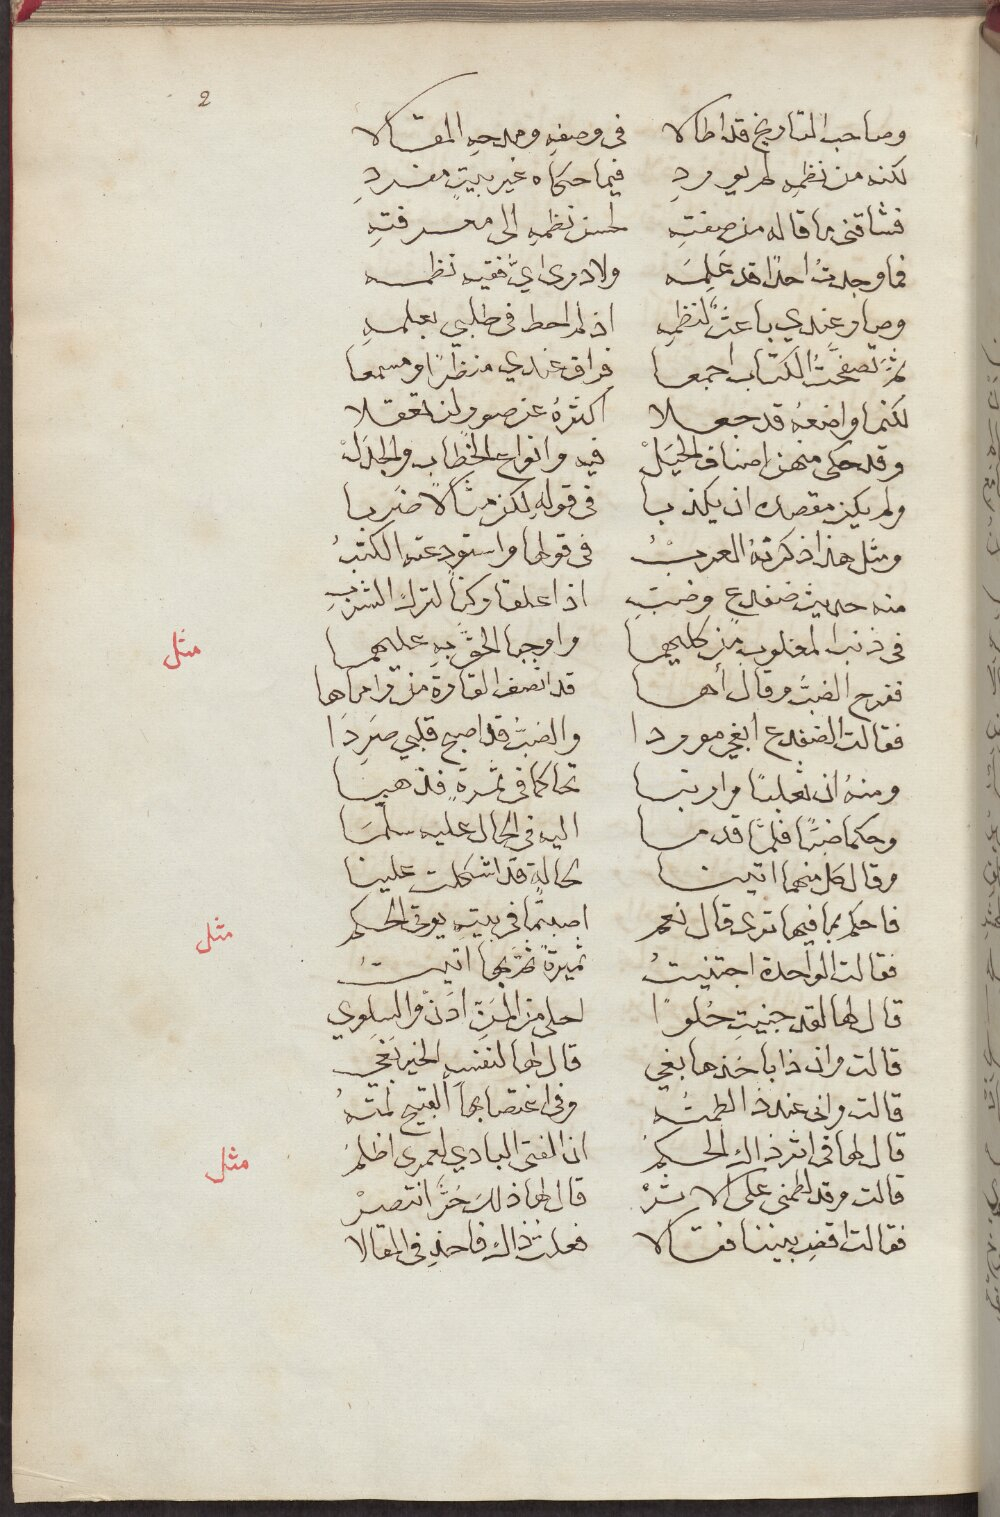 2
وصاحب التاريخ قد اطالا في وصفهِ ومدحهِ المقالا
لكنه من نظمهِ لم يوردِ فيما حكاه غير بيتٍ مفردِ
فشاقني ما قاله من صفتهِ لحسن نظمهِ الى معرفتهِ
فما وجدتُ احدًا قد عَلِمَه ولا درى ايُّ فقيه نظمه
وصار عندي باعثٌ لنظمهِ اذ لم احط في طلبي بعلمهِ
ثم تصفحتُ الكتاب اجمعا فراق عندي منظرًا ومسمعا
لكنما واضعهُ قد جعلا اكثرهُ عن صور لن تعقلا
وقد حكى منهن اصناف الحيَلْ فيه وانواع الخطاب والجدَلْ
ولم يكن مقصده ان يكذبا في قولهِ لكن مثالًا ضربا
ومثل هذا ذكرتهُ العربُ في قولها واستودعته الكتبُ
منه حديث ضفدعٍ وضبِّ اذا علقا وكنا لترك الشربِ
في ذنب المغلوب من كليهما واوجبا الحق بهِ عليهما
مثل
ففرح الضبُ وقال أها قد انصف القارة من راماها
فقالت الضفدع ابغي موردا والضبُ قد اصبح قلبي صَرِدَا
ومنهُ ان ثعلبًا وارنبا تحاكما في ثمرةٍ فذهبا
وحكما ضبًا فلمّا قدما اليه في الحال عليه سلّمَا
وقال كل منهما اتينا بحالةٍ قد اشكلت علينا
فاحكم بما فيها ترى قال نعم اصبتما في بيته يوتى الحكم
مثل
فقالت الواحدة اجتنيتُ ثميرةً ثمّ بها اتيتُ
قال لها لقد جنيتِ حُلوًا احلى من المنِّ اذن والسلوي
قالت وان ذا باخذها بغي قال لها لنفسهِ الخير بغي
قالت واني عند ذا لطمتُه وفي اغتصابها القبيح لمتهُ
قال لها في اثر ذاك الحكمُ ان الفتى البادي لعمري اظلمُ
مثل
قالت وقد لطمني على الاثرْ قال لها ذلك حُرٌّ انتصرْ
فقالت اقضِ بيننا فقالا فعلت ذاك فاحذِ في المقالا